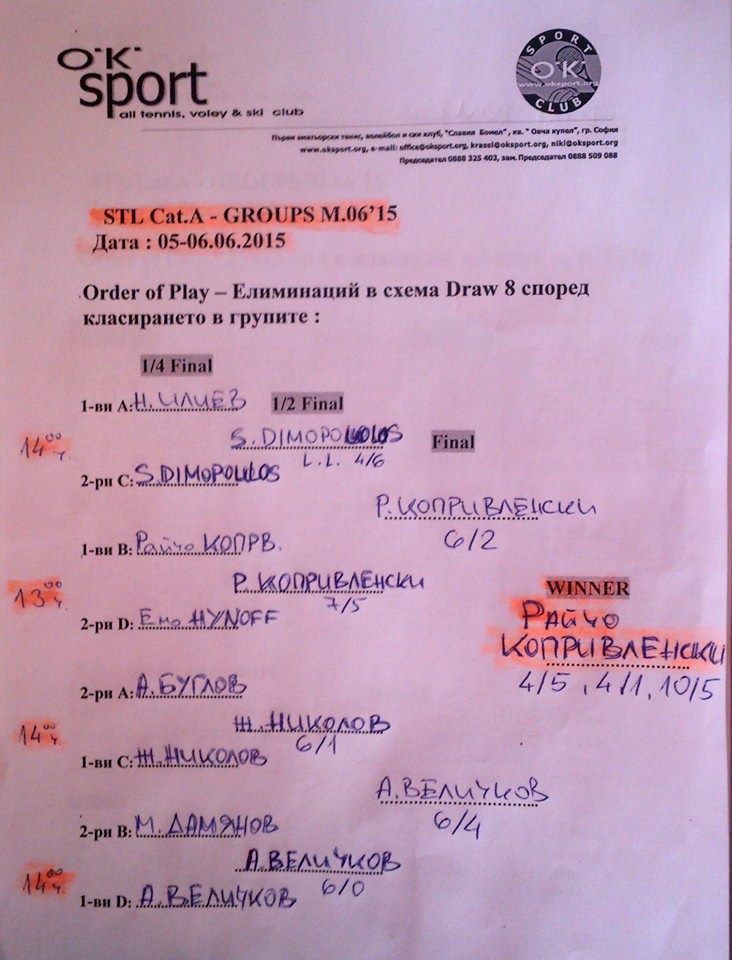 O·K·
sport
all tennis, voley & ski club
SPORT
O·K·
www.oksport.org
CLUB
Първи аматьорски тенис, волейбол и ски клуб, "Славия Бомел", кв. " Овча купел", гр. София
www.oksport.org, e-mail: office@oksport.org, krassi@oksport.org, niki@oksport.org
Председател 0888 325 403, зам. Председател 0888 509 088
STL Cat.A - GROUPS M.06'15
Дата : 05-06.06.2015
Order of Play – Елиминаций в схема Draw 8 според
класирането в групите :
1/4 Final
1-ви А: Н. ИЛИЕВ
1/2 Final
14 00 ч.
S. DIMOPOULOS
L.L. 4/6
Final
2-ри С: S. DIMOPOULOS
Р. КОПРИВЛЕНСКИ
6/2
1-ви В: Райчо КОПРВ.
13 00 ч.
Р. КОПРИВЛЕНСКИ
7/5
WINNER
РАЙЧО
КОПРИВЛЕНСКИ
4/5, 4/1, 10/5
2-ри D: Емо HYNOFF
2-ри А: А. БУГЛОВ
14 00 ч.
Ж. НИКОЛОВ
6/1
1-ви С: Ж. НИКОЛОВ
А. ВЕЛИЧКОВ
6/4
2-ри В: М. ДАМЯНОВ
14 00 ч.
А. ВЕЛИЧКОВ
6/0
1-ви D: А. ВЕЛИЧКОВ